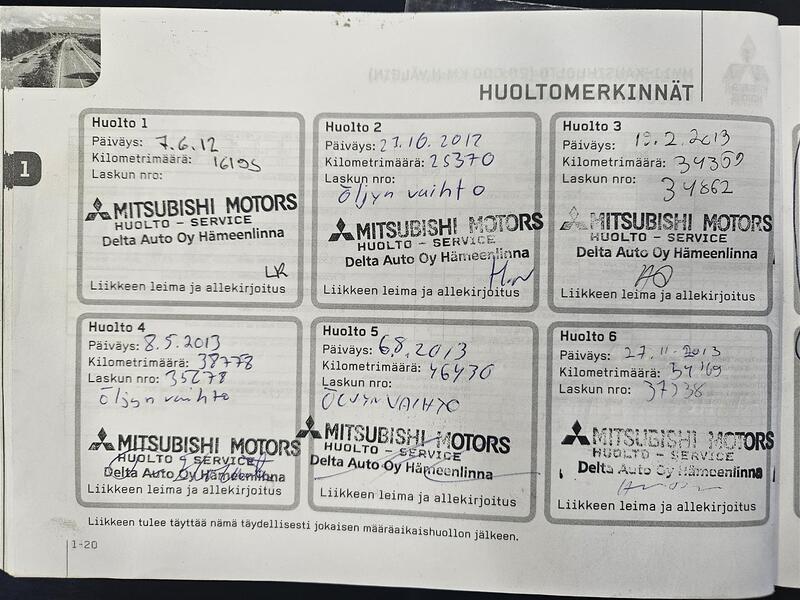 HUOLTOMERKINNÄT
1
Huolto 1
Päiväys: 7.6.12
Kilometrimäärä: 16195
Laskun nro:
MITSUBISHI MOTORS
HUOLTO - SERVICE
Delta Auto Oy Hämeenlinna
LR
Liikkeen leima ja allekirjoitus
Huolto 2
Päiväys: 23.10.2012
Kilometrimäärä: 25370
Laskun nro:
Öljyn vaihto
MITSUBISHI MOTORS
HUOLTO - SERVICE
Delta Auto Oy Hämeenlinna
Liikkeen leima ja allekirjoitus
Huolto 3
Päiväys: 19.2.2013
Kilometrimäärä: 34359
Laskun nro:
34862
MITSUBISHI MOTORS
HUOLTO - SERVICE
Delta Auto Oy Hämeenlinna
Liikkeen leima ja allekirjoitus
Huolto 4
Päiväys: 8.5.2013
Kilometrimäärä: 38778
Laskun nro: 35678
Öljyn vaihto
MITSUBISHI MOTORS
HUOLTO - SERVICE
Delta Auto Oy Hämeenlinna
Liikkeen leima ja allekirjoitus
Huolto 5
Päiväys: 6.8.2013
Kilometrimäärä: 46430
Laskun nro:
ÖLJYN VAIHTO
MITSUBISHI MOTORS
HUOLTO - SERVICE
Delta Auto Oy Hämeenlinna
Liikkeen leima ja allekirjoitus
Huolto 6
Päiväys: 27.11.2013
Kilometrimäärä:
Laskun nro: 37338
MITSUBISHI MOTORS
HUOLTO - SERVICE
Delta Auto Oy Hämeenlinna
Liikkeen leima ja allekirjoitus
Liikkeen tulee täyttää nämä täydellisesti jokaisen määräaikaishuollon jälkeen.
1-20